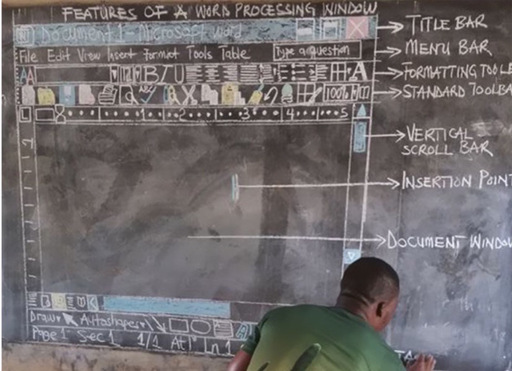 FEATURES OF A WORD PROCESSING WINDOW
Document 1 - Microsoft word
TITLE BAR
File Edit View Insert Format Tools Table
Type a question
MENU BAR
AA
B I U
A
FORMATTING TOOLB
ABC
100%
STANDARD TOOLBA
1 2 3 4 5
VERTICAL
SCROLL BAR
2
INSERTION POINT
DOCUMENT WINDOW
Draw Autoshapes
Page 1 Sec 1 1/1 At 1" Ln 1